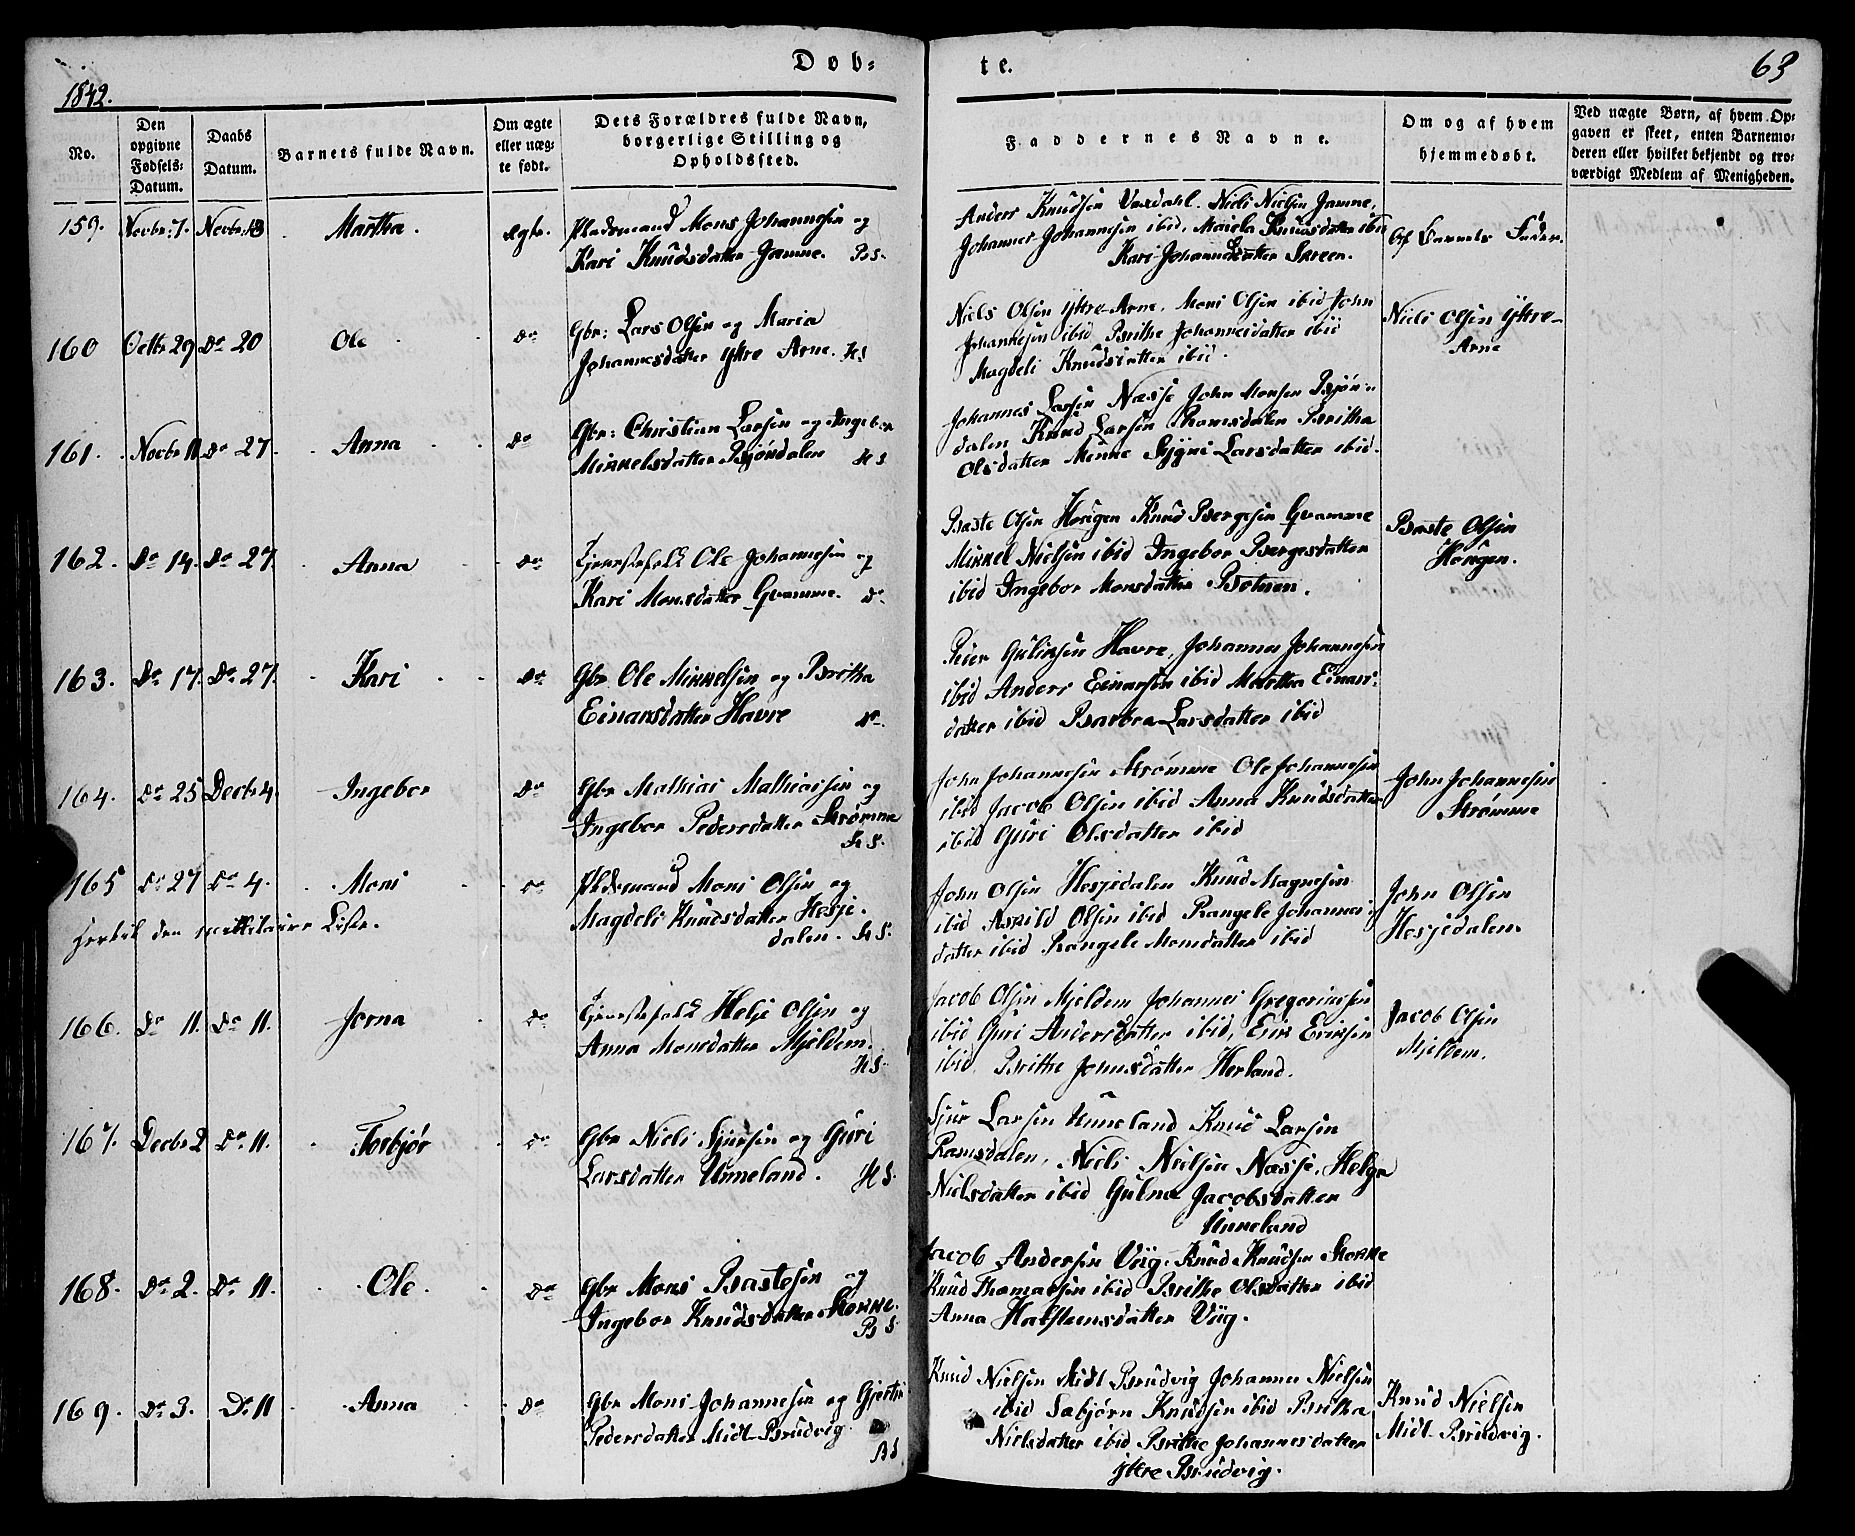 Døb-
te.
63
1842.
No.
Den opgivne Fødsels-Datum.
Daabs Datum.
Barnets fulde Navn.
Om ægte eller uæg-te født.
Dets Forældres fulde Navn, borgerlige Stilling og Opholdssted.
Faddernes Navne.
Om og af hvem hjemmedøbt.
Ved uægte Børn, af hvem Op-gaven er skeet, enten Barnemo-deren eller hvilket bekjendt og tro-værdigt Medlem af Menigheden.
159. Novbr: 7. Novbr: 13 Martha. ægte.
Pladsmand Mons Johannesen og
Kari Knudsdatter Gamme. B S.
Anders Knudsen Unedahl. Niels Nielsen Gamme,
Johannes Johannesen ibid, Knudsdatter ibid
Kari Johannesdatter
Af Barnets Fader.
160 Octbr 29 Do 20 Ole Do
Gbr: Lars Olsen og Maria
Johannesdatter Ytre Arne. H S
Niels Olsen Ytre-Arne, Mons Olsen ibid John
Johannesen ibid Brithe Johannesdatter ibid
Magdeli Knudsdatter ibid.
Niels Olsen Ytre-
Arne
161. Novbr 11 Do 27 Anna Do
Gbr: Christian Larsen og Ingebor
Mikkelsdatter Bjøndalen H S
Johannes Larsen Næsse John Monsen Bjøn-
dalen Knud Larsen Ramsdalen Britha
Olsdatter Menne Sygni Larsdatter ibid.
162. Do 14. Do 27. Anna Do
Tjenestefolk Ole Johannesen og
Kari Monsdatter Gvamme. Do
Baste Olsen Hougen Knud Bergesen Gvamme
Mikkel Nielsen ibid Ingebor Bergesdatter
ibid Ingebor Monsdatter Botnen.
Baste Olsen
Hougen.
163. Do 17. Do 27. Kari Do
Gbr Ole Mikkelsen og Britha
Einarsdatter Havre Do
Peier Gulliksen Havre, Johannes Johannesen
ibid Anders Einarsen ibid Martha Einars-
datter ibid Barbra Larsdatter ibid
164. Do 25 Decbr 4. Ingebor Do
Gbr Mathias Mathiassen og
Ingebor Pedersdatter Strømme
H S.
John Johannesen Strømme Ole Johannesen
ibid Jacob Olsen ibid Anna Knudsdatter
ibid Guri Olsdatter ibid
John Johannesen
Strømme
165 Do 27 Do 4. Mons Do
Pladsmand Mons Olsen og
Magdeli Knudsdatter Hesje-
dalen. H S.
John Olsen Hesjedalen Knud Magnesen
ibid Askild Olsen ibid Rangele Johannes-
datter ibid Rangele Monsdatter ibid
John Olsen
Hesjedalen
den militaire Liste.
166. Do 11. Do 11. Jorna Do
Tjenestefolk Helje Olsen og
Anna Monsdatter Mjeldem.
H S.
Jacob Olsen Mjeldem Johannes Gregoriussen
ibid Guri Andersdatter ibid, Erik Eriksen
ibid. Brithe Johnsdatter Herland.
Jacob Olsen
Mjeldem.
167. Decbr 2 Do 11. Torbjør Do
Gbr Niels Sjursen og Guri
Larsdatter Unneland. H S.
Sjur Larsen Unneland Knud Larsen
Ramsdalen, Niels Nielsen Næsse, Helga
Nielsdatter ibid Gulna Jacobsdatter
Unneland
168. Do 2. Do 11. Ole. Do
Gbr Mons Bastesen og
Ingebor Knudsdatter Stokke.
B S
Jacob Andersen Viig. Knud Knudsen Stokke
Knud Thomassen ibid Brithe Olsdatter ibid
Anna Halsteensdatter Viig.
169. Do 3. Do 11 Anna Do
Gbr Mons Johannesen og Gjertru
Pedersdatter Midt-Brudvig
B S
Knud Nielsen Midt Brudvig Johannes Nielsen
ibid Sæbjørn Knudsen ibid Britha
Nielsdatter ibid Brithe Johannesdatter
Ytre Brudvig.
Knud Nielsen
Midt-Brudvig.